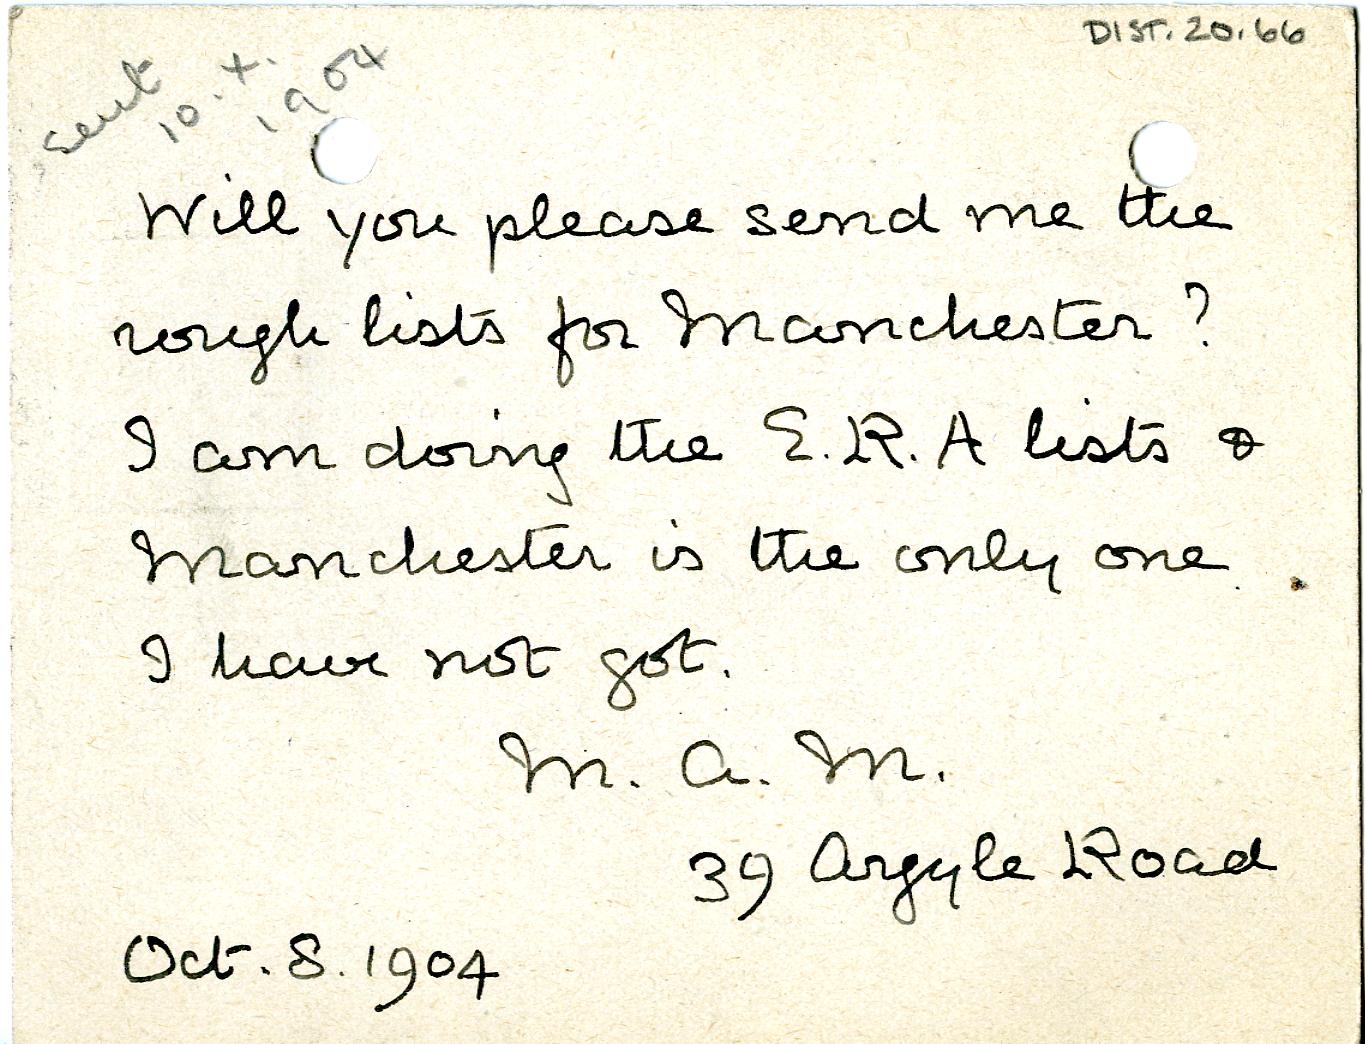 DIST. 20.66
sent
10. x.
1904
Will you please send me the
rough lists for Manchester?
I am doing the E.R.A lists &
Manchester is the only one
I have not got.
M. A. M.
39 Argyle Road
Oct. 8. 1904